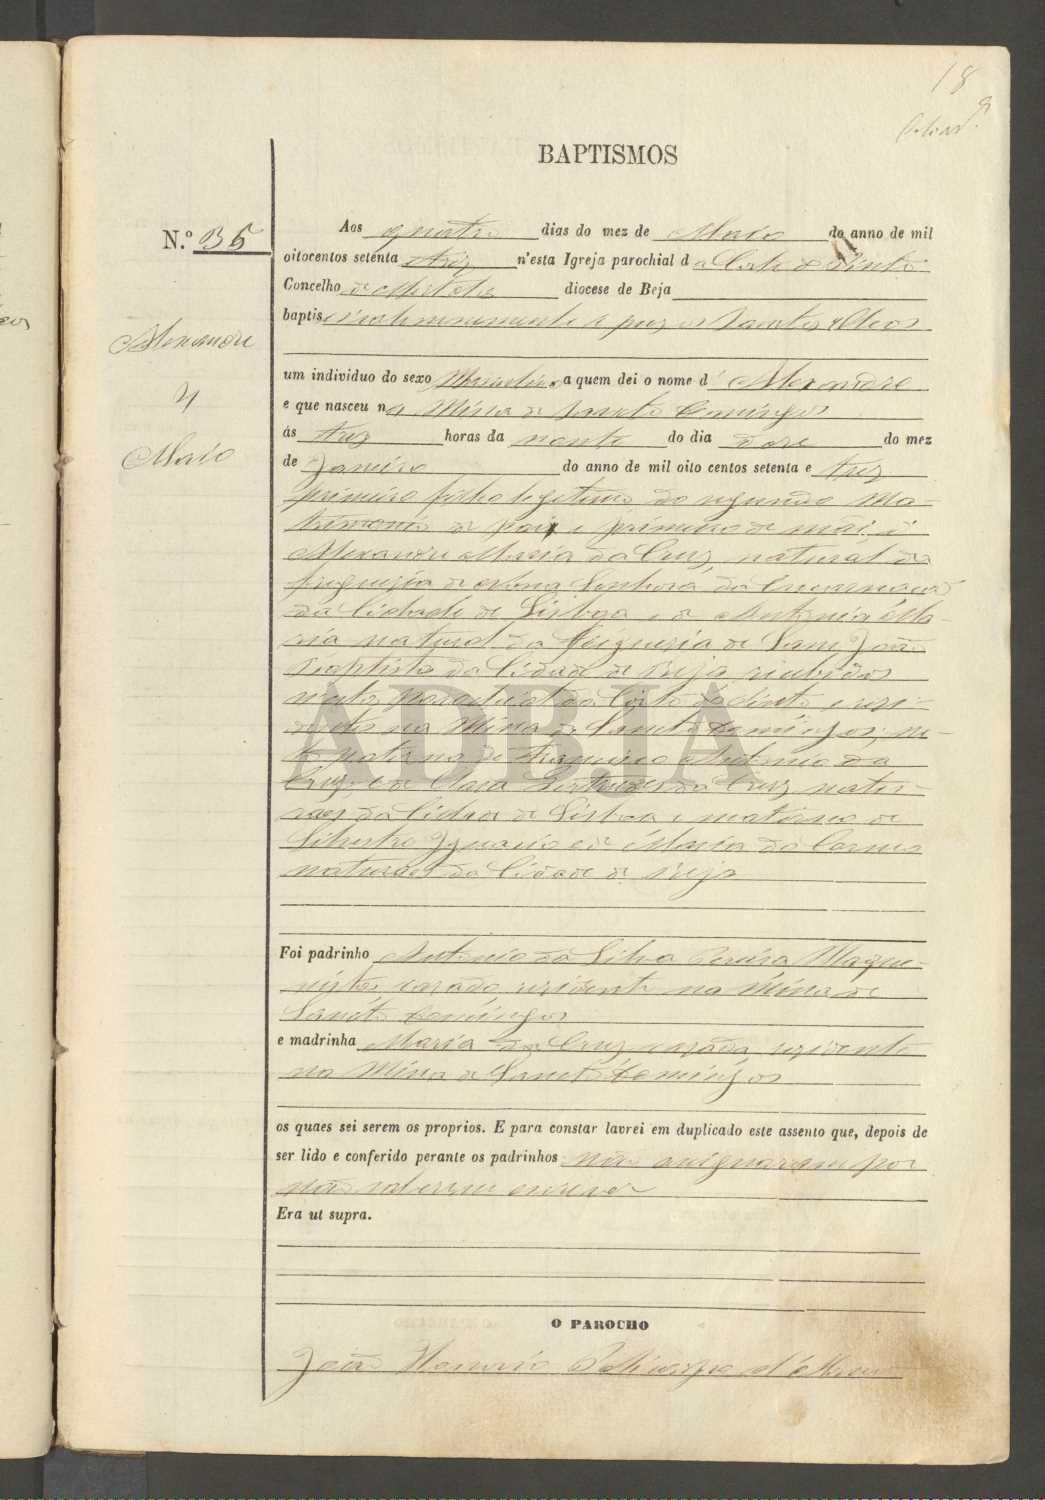 18
BAPTISMOS
N.º 35
Alexandre
4
Maio
Aos quatro dias do mez de Maio do anno de mil
oitocentos setenta e trez n'esta Igreja parochial da Corte do Pinto
Concelho de Mertola diocese de Beja
baptisei solemnemente e puz os Sanctos Oleos
um individuo do sexo Masculino a quem dei o nome d' Alexandre
e que nasceu na Mina de Sancto Domingos
ás trez horas da noute do dia doze do mez
de Janeiro do anno de mil oito centos setenta e trez
primeiro filho legitimo do segundo Ma-
trimonio de pai e primeiro de mãi, d'
Alexandre Maria da Cruz, natural da
freguezia de Nossa Senhora da Encarnação
da Cidade de Lisboa e de Antonia Ma-
ria natural da freguezia de Sam João
Baptista da Cidade de Beja recebidos
nesta parochial da Corte do Pinto e resi-
dentes na Mina de Sancto Domingos, ne-
to paterno de Francisco Antonio da
Cruz e de Clara Gertrudes da Cruz, natu-
raes da Cidade de Lisboa e materno de
Silvestre Ignacio e de Maria do Carmo
naturaes da Cidade de Beja
Foi padrinho Antonio da Silva Pereira Maqui-
nista, casado, residente na Mina de
Sancto Domingos
e madrinha Maria da Cruz, casada, residente
na Mina de Sancto Domingos
os quaes sei serem os proprios. E para constar lavrei em duplicado este assento que, depois de
ser lido e conferido perante os padrinhos não assignaram por
não saberem escrever
Era ut supra.
O PAROCHO
João
ADBJA